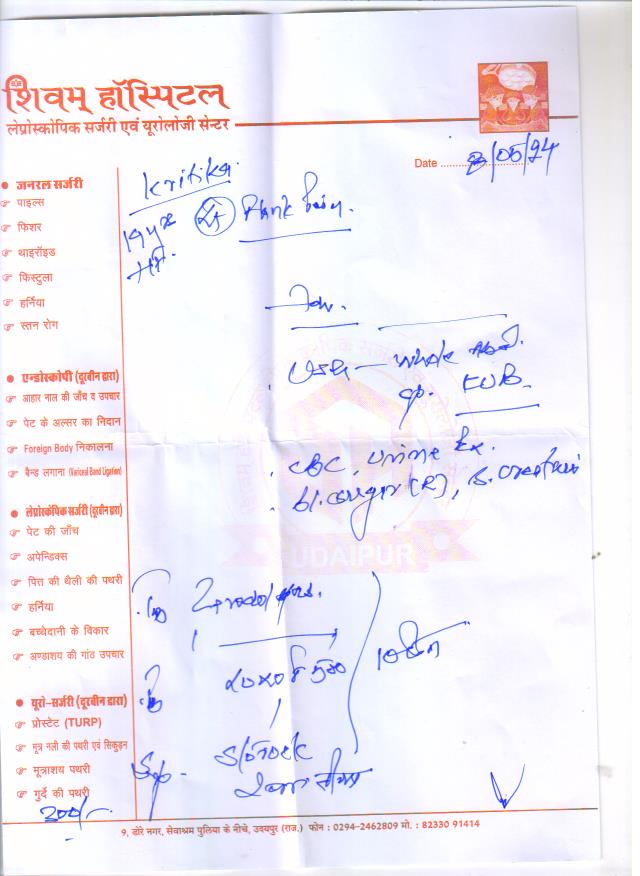 शिवम् हॉस्पिटल
लेप्रोस्कोपिक सर्जरी एवं यूरोलोजी सेन्टर
Date ........ /05/24
जनरल सर्जरी
पाइल्स
फिशर
थाइरॉइड
फिस्टुला
हर्निया
स्तन रोग
एन्डोस्कोपी (दूरबीन द्वारा)
आहार नाल की जाँच व उपचार
पेट के अल्सर का निदान
Foreign Body निकालना
बैन्ड लगाना (Variceal Band Ligation)
लेप्रोस्कोपिक सर्जरी (दूरबीन द्वारा)
पेट की जाँच
अपेन्डिक्स
पित्त की थैली की पथरी
हर्निया
बच्चेदानी के विकार
अण्डाशय की गांठ उपचार
यूरो-सर्जरी (दूरबीन द्वारा)
प्रोस्टेट (TURP)
मूत्र नली की पथरी एवं सिकुड़न
मूत्राशय पथरी
गुर्दे की पथरी
200/-
Kritika
19 yrs
Flank Pain.
USG - whole Abd.
KUB.
CBC, Urine Ex.
bl. sugar (R), S. Creatinin
10 दिन
UDAIPUR
9, डोरे नगर, सेवाश्रम पुलिया के नीचे, उदयपुर (राज.) फोन : 0294-2462809 मो. : 82330 91414